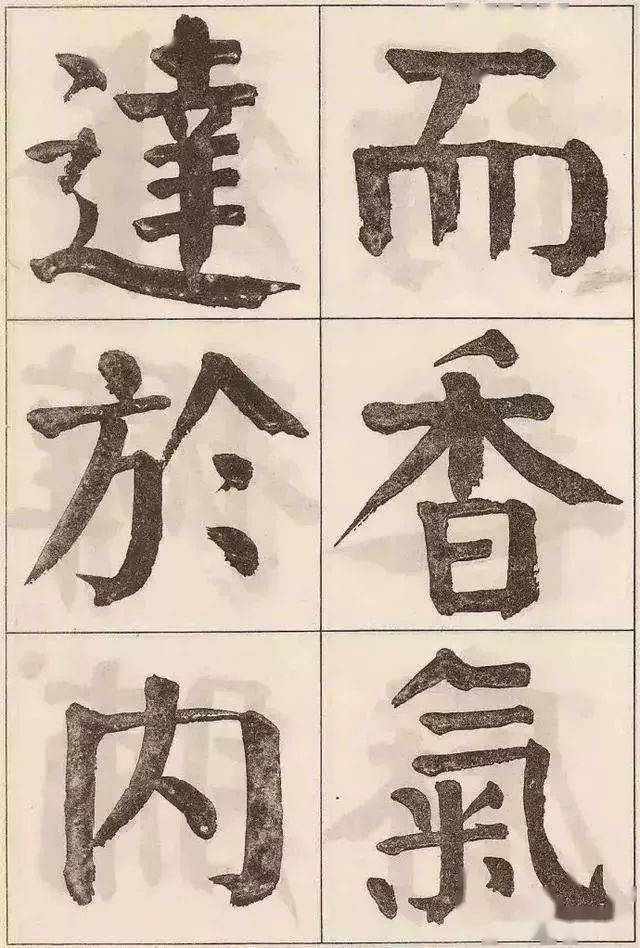 而香氣
達於內